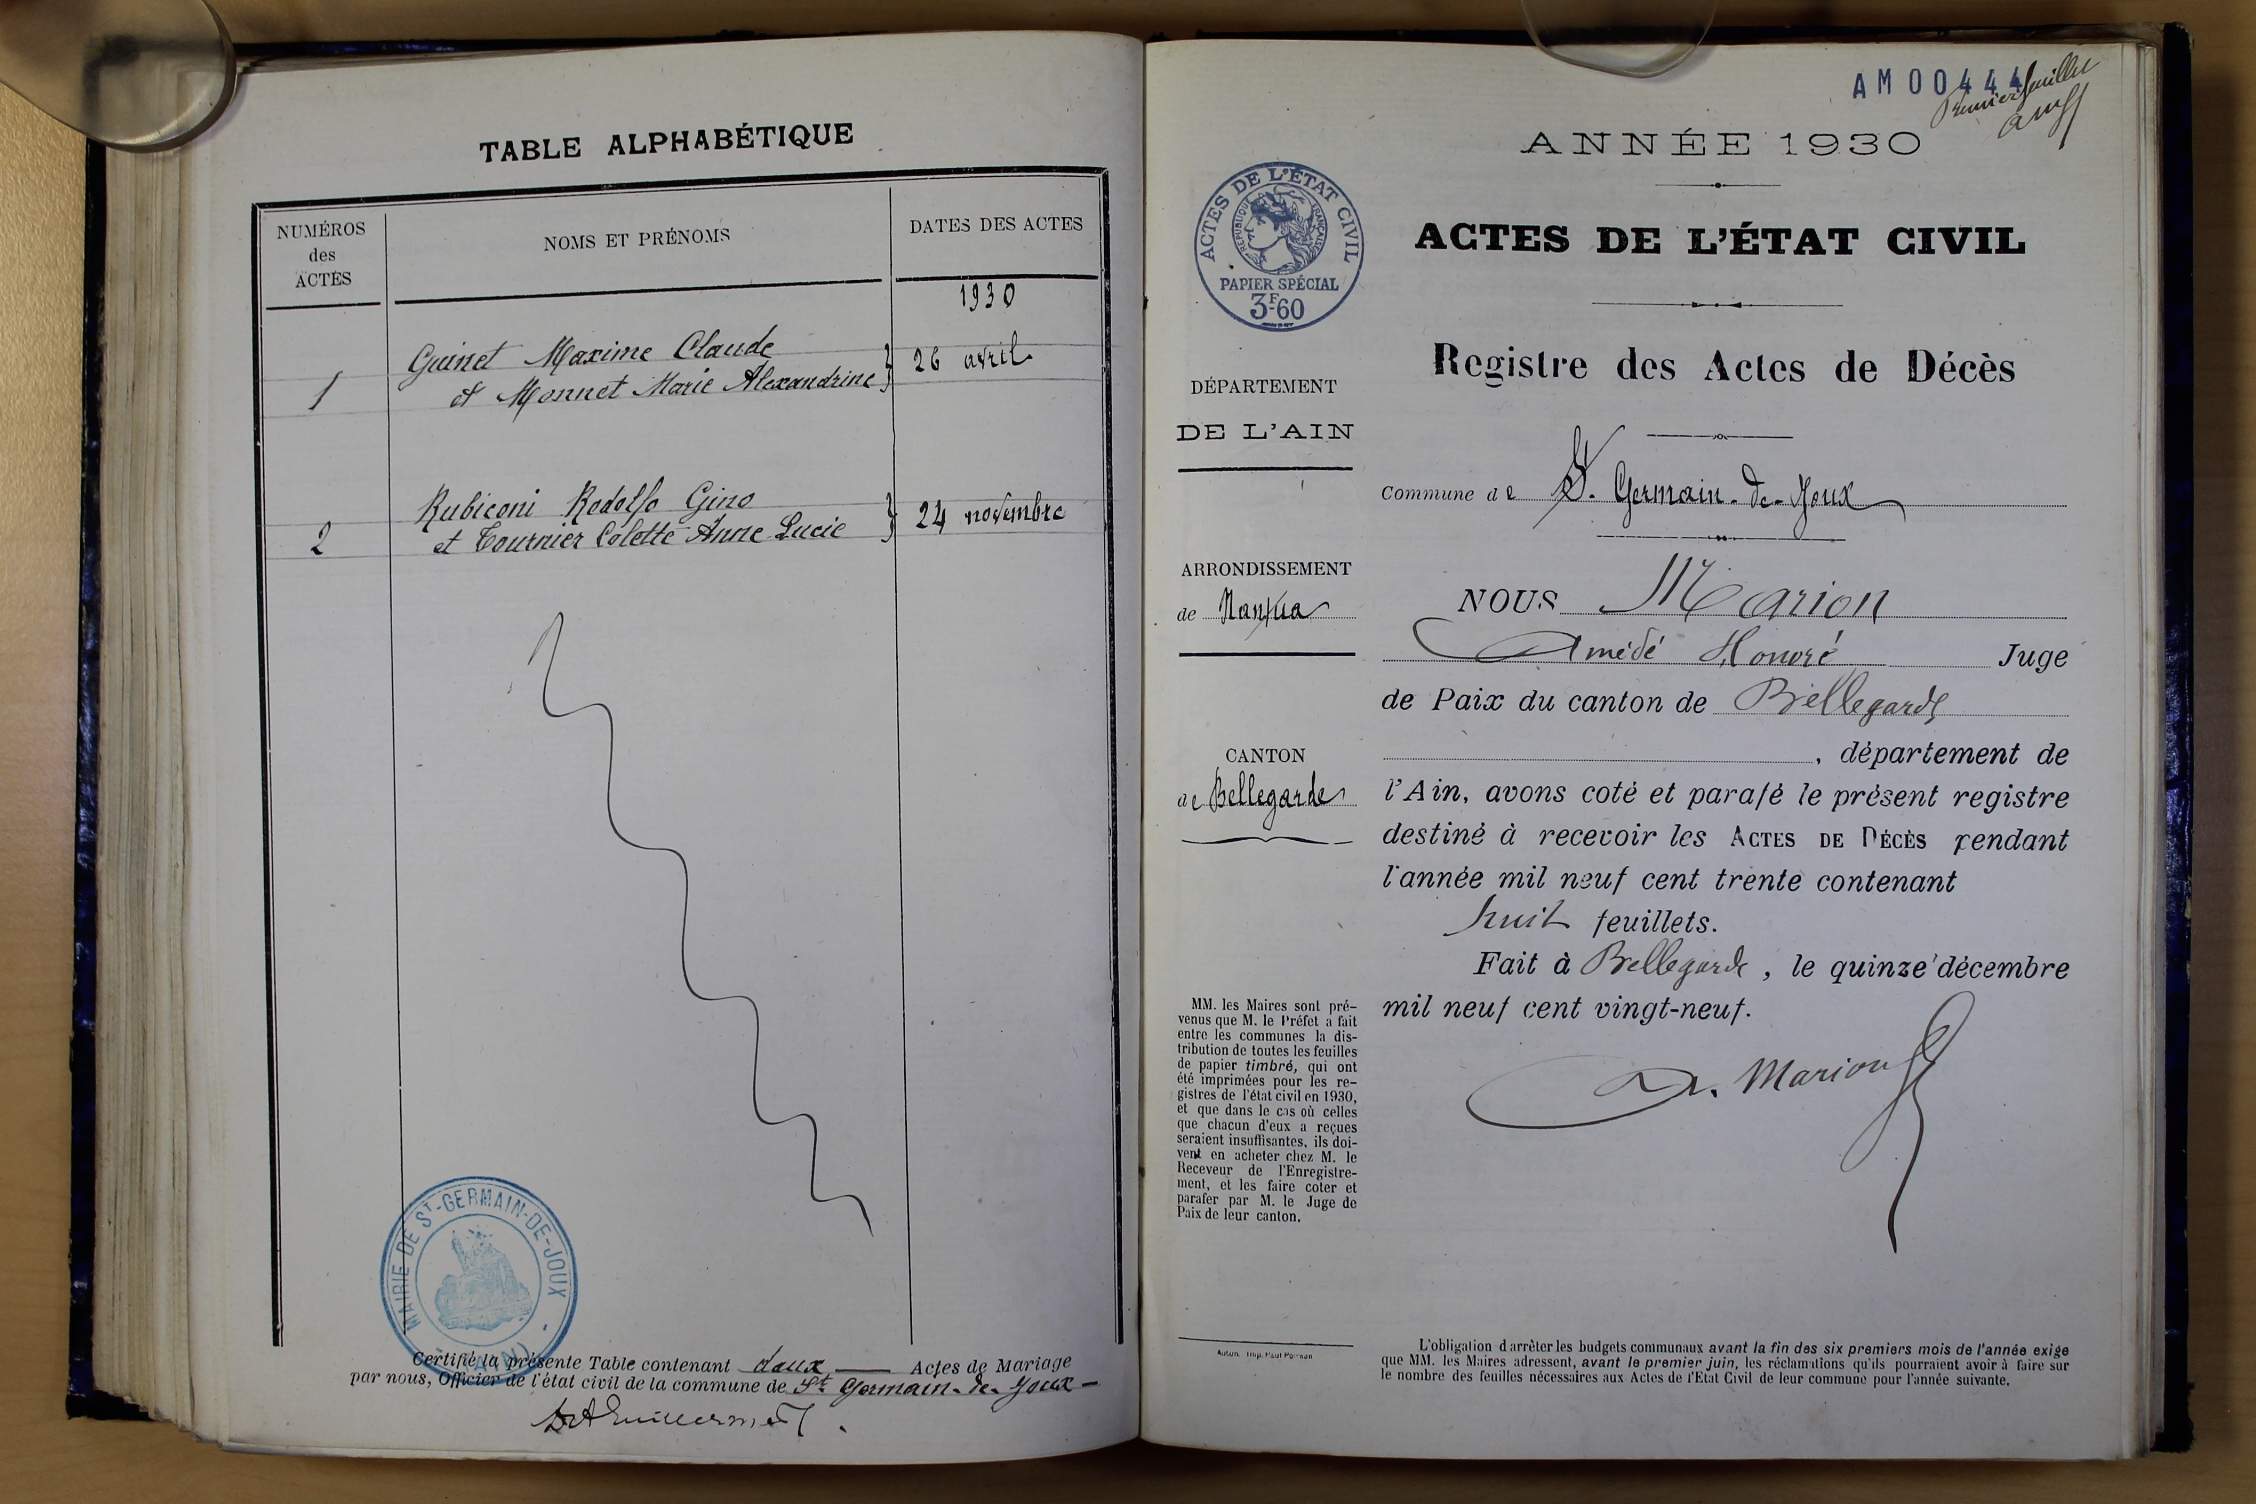 TABLE ALPHABÉTIQUE
NUMÉROS
des
ACTES
NOMS ET PRÉNOMS
DATES DES ACTES
1930
Guinet Maxime Claude
1 et Monnet Marie Alexandrine } 26 avril
Rubiconi Rodolfo Gino
2 et Tournier Colette Anne Lucie } 24 novembre
MAIRIE DE ST-GERMAIN-DE-JOUX
(AIN)
Certifié la présente Table contenant deux Actes de Mariage
par nous, Officier de l'état civil de la commune de St Germain-de-Joux
AM 00444
Premier feuillet
ANNÉE 1930
ACTES DE L'ÉTAT CIVIL
RÉPUBLIQUE FRANÇAISE
PAPIER SPÉCIAL
3F60
ACTES DE L'ÉTAT CIVIL
Registre des Actes de Décès
DÉPARTEMENT
DE L'AIN
Commune de St. Germain-de-Joux
ARRONDISSEMENT
de Nantua
NOUS Marion
Amédé Honoré Juge
de Paix du canton de Bellegarde
, département de
CANTON
de Bellegarde
l'Ain, avons coté et parafé le présent registre
destiné à recevoir les ACTES DE DÉCÈS pendant
l'année mil neuf cent trente contenant
huit feuillets.
Fait à Bellegarde, le quinze décembre
mil neuf cent vingt-neuf.
A. Marion
MM. les Maires sont pré-
venus que M. le Préfet a fait
entre les communes la dis-
tribution de toutes les feuilles
de papier timbré, qui ont
été imprimées pour les re-
gistres de l'état civil en 1930,
et que dans le cas où celles
que chacun d'eux a reçues
seraient insuffisantes, ils doi-
vent en acheter chez M. le
Receveur de l'Enregistre-
ment, et les faire coter et
parafer par M. le Juge de
Paix de leur canton.
L'obligation d'arrêter les budgets communaux avant la fin des six premiers mois de l'année exige
que MM. les Maires adressent, avant le premier juin, les réclamations qu'ils pourraient avoir à faire sur
le nombre des feuilles nécessaires aux Actes de l'Etat Civil de leur commune pour l'année suivante.